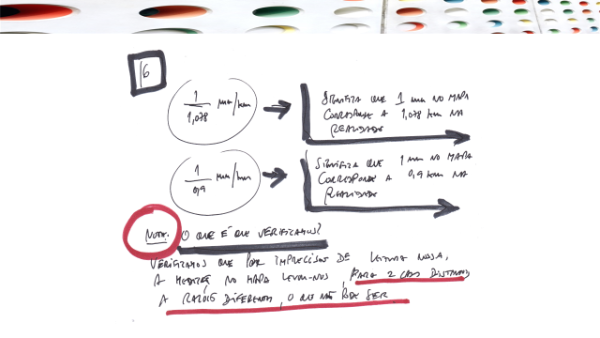 16
1/1,078 mm/km
SIGNIFICA QUE 1 mm NO MAPA
CORRESPONDE A 1,078 km NA
REALIDADE
1/0,9 mm/km
SIGNIFICA QUE 1 mm NO MAPA
CORRESPONDE A 0,9 km NA
REALIDADE
NOTA: O QUE É QUE VERIFICAMOS?
VERIFICAMOS QUE POR IMPRECISÃO DE LEITURA NOSA,
A NO MAPA LEVOU-NOS, PARA 2 CASOS DISTINTOS
A RAZÕES DIFERENTES, O QUE NÃO PODE SER